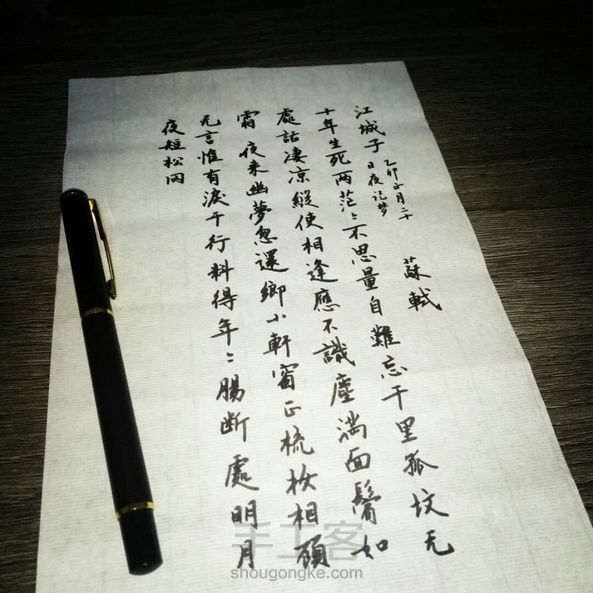 江城子
乙卯正月二十
日夜记梦
蘇軾
十年生死两茫〻不思量自難忘千里孤坟无
處話淒凉縱使相逢應不識塵滿面鬢如
霜夜来幽夢忽還鄉小軒窗正梳妆相顧
无言惟有淚千行料得年〻腸断處明月
夜短松冈
手工客
shougongke.com